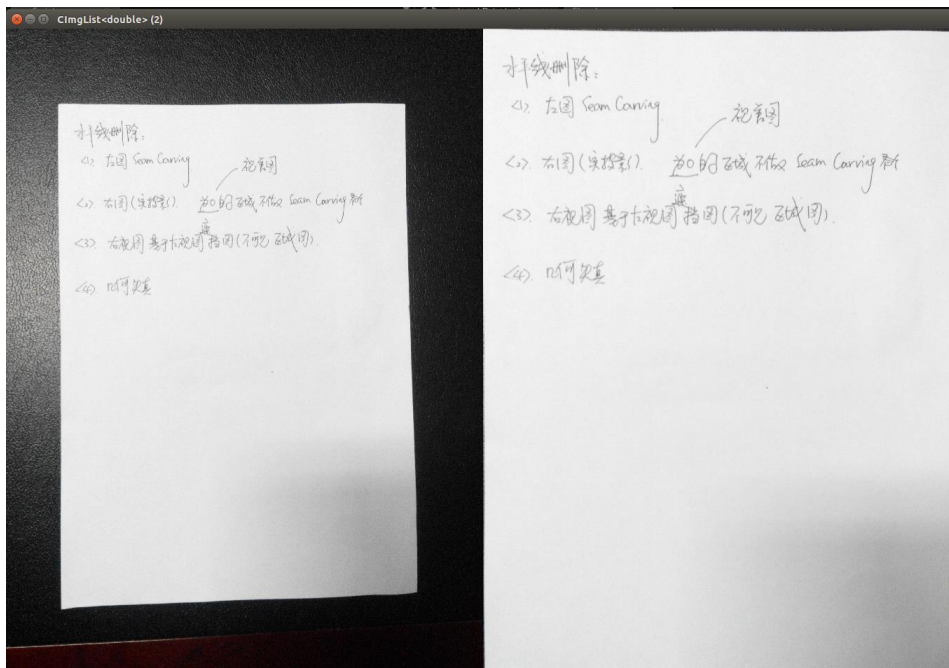 CImgList<double> (2)
删除:
<1>. 左图 Seam Carving
视差图
<2>. 右图 ( 为0的区域不做 Seam Carving
<3>. 右视图 基于左视图 遮挡图(不可见区域图).
<4>. 几何失真
删除:
<1>. 左图 Seam Carving
视差图
<2>. 右图 ( 为0的区域不做 Seam Carving
<3>. 右视图 基于左视图 遮挡图(不可见区域图).
<4>. 几何失真